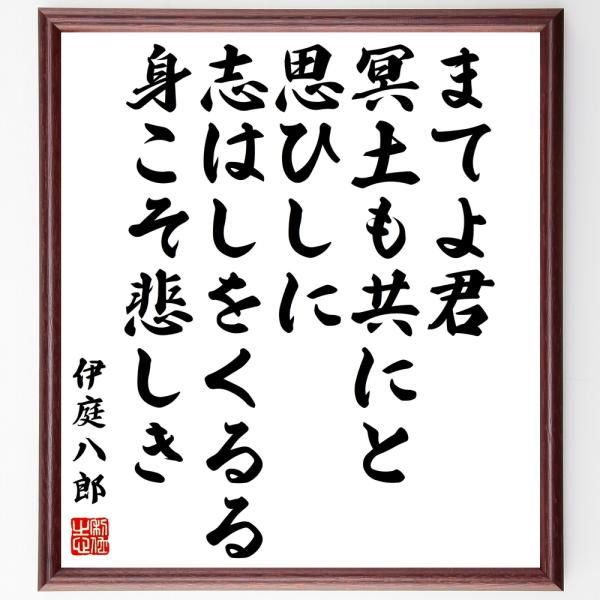 まてよ君
冥土も共にと
思ひしに
志はしをくるる
身こそ悲しき
伊庭八郎